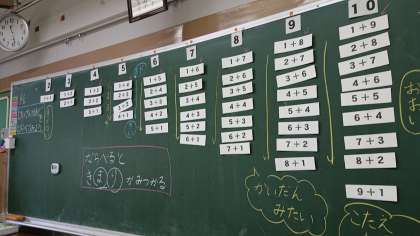 2
1+1
3
1+2
2+1
4
1+3
2+2
3+1
5
1+4
2+3
3+2
4+1
6
1+5
2+4
3+3
4+2
5+1
7
1+6
2+5
3+4
4+3
5+2
6+1
8
1+7
2+6
3+5
4+4
5+3
6+2
7+1
9
1+8
2+7
3+6
4+5
5+4
6+3
7+2
8+1
10
1+9
2+8
3+7
4+6
5+5
6+4
7+3
8+2
9+1
ならべると
きまりがみつかる
かいだん
みたい
こたえ